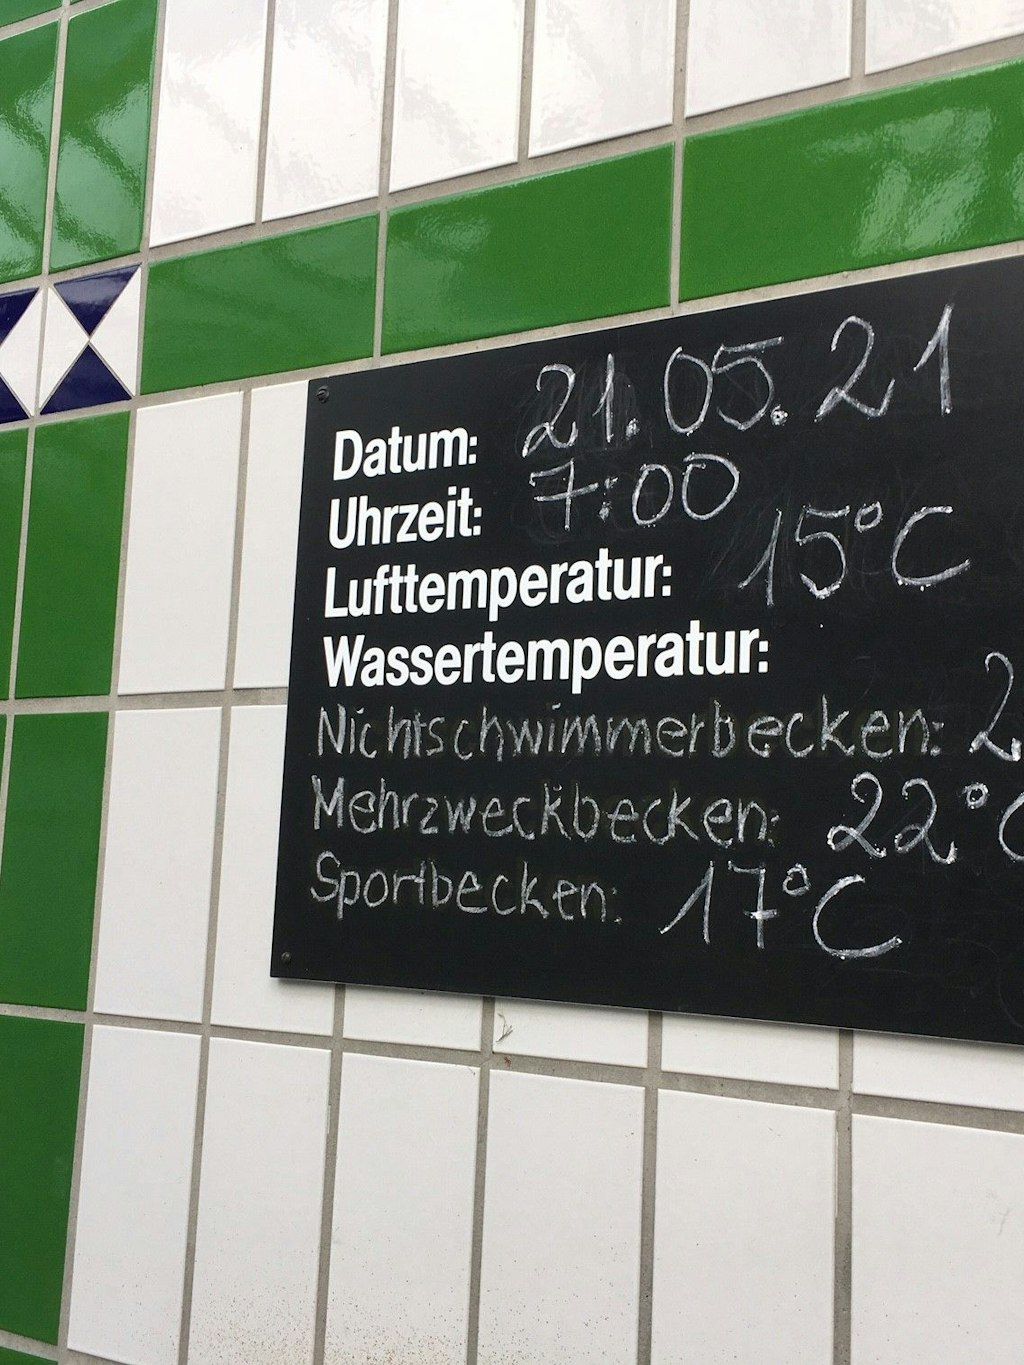 Datum: 21.05.21
Uhrzeit: 7:00
Lufttemperatur: 15°C
Wassertemperatur:
Nichtschwimmerbecken: 2
Mehrzweckbecken: 22°C
Sportbecken: 17°C